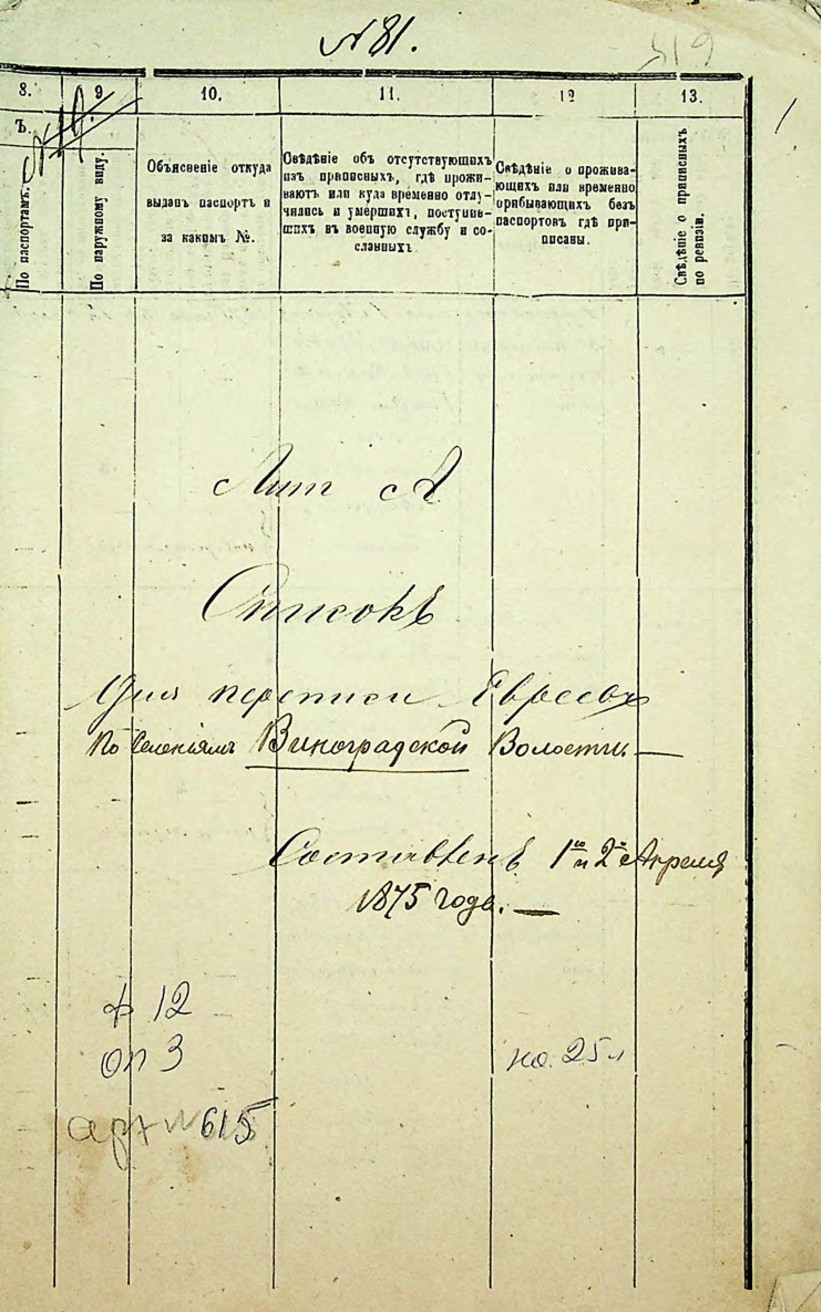 № 81.
615
1
8.
9
10.
11.
12
13.
Ъ.
№ 19.
По паспортамъ.
По наружному виду.
Объясненіе откуда
выданъ паспортъ и
за какимъ №.
Свѣдѣніе объ отсутствующихъ
изъ приписныхъ, гдѣ прожи-
ваютъ или куда временно отлу-
чились и умершихъ, поступив-
шихъ въ военную службу и со-
сланныхъ
Свѣдѣніе о прожива-
ющихъ или временно
прибывающихъ безъ
паспортовъ гдѣ при-
писаны.
Свѣдѣніе о приписныхъ
по ревизіи.
Лит А.
Списокъ
Для переписи Евреевъ
По Селеніямъ Виноградской Волости. —
Составленъ 1го и 2го Апреля
1875 года. —
ф 12
оп 3
на 25 л
арх № 615